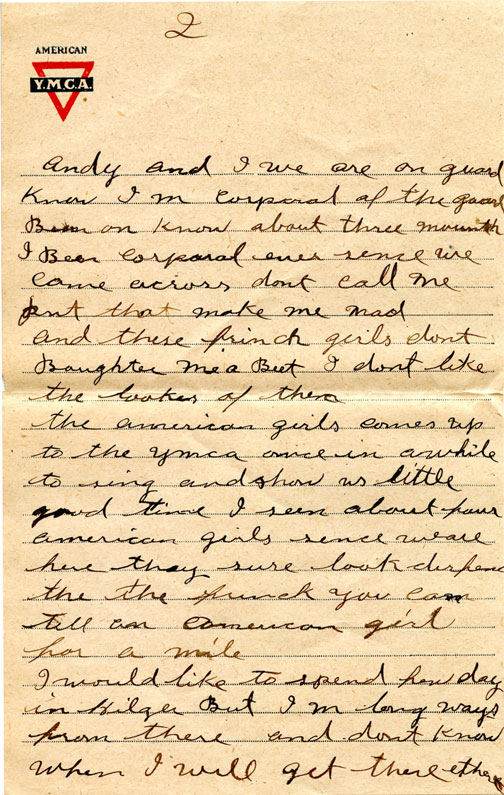 2
AMERICAN
Y.M.C.A.
Andy and I we are on guard
Know I m Corporal of the guard
Been on Know about three mounth
I Been Corporal ever sence we
came across dont call me
pvt that make me mad
and these french girls dont
Baughter me a Beet I dont like
the lookes of them
the american girls comes up
to the ymca once in awhile
to sing and show us little
good time I seen about four
american girls sence we are
here they sure look
the the french You can
till an american girl
for a mile
I would like to spend few day
in Hilger But I m long ways
from there and dont Know
when I will get there